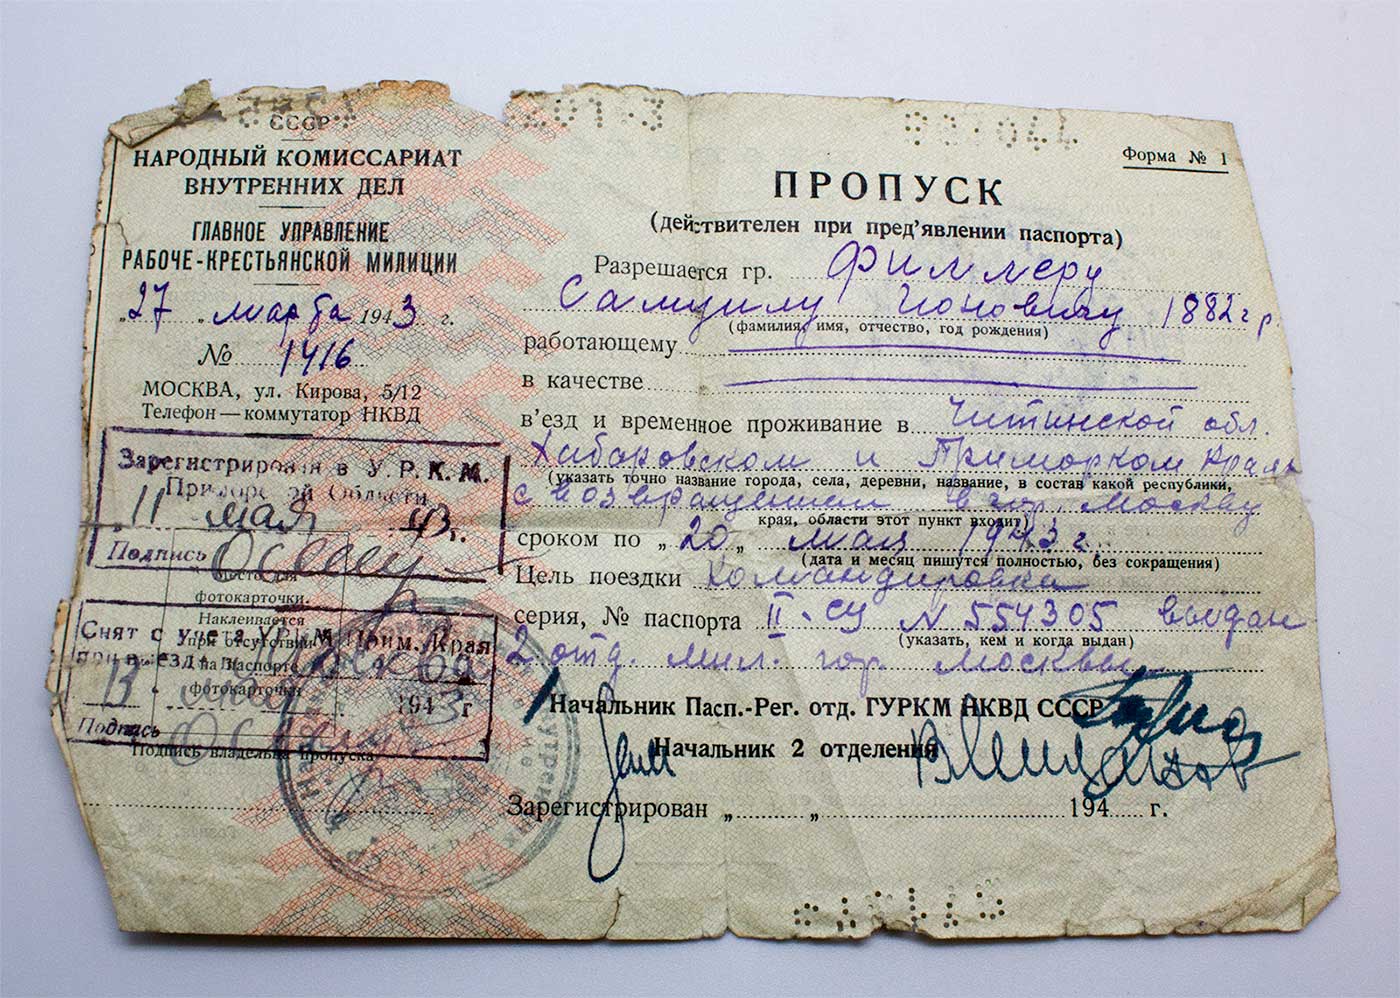 СССР
НАРОДНЫЙ КОМИССАРИАТ
ВНУТРЕННИХ ДЕЛ
ГЛАВНОЕ УПРАВЛЕНИЕ
РАБОЧЕ-КРЕСТЬЯНСКОЙ МИЛИЦИИ
„27" марта 1943 г.
№ 1416
МОСКВА, ул. Кирова, 5/12
Телефон — коммутатор НКВД
Зарегистрирован в У.Р.К.М.
Приморской Области
„11 мая 43 г.
Подпись
Место для
фотокарточки.
Наклеивается
при отсутствии
на паспорте
фотокарточки
Снят с учета УРКМ Прим. Края
при выезде в Москва
13 1943
Подпись
Подпись владельца пропуска
Форма № 1
ПРОПУСК
(действителен при пред'явлении паспорта)
Разрешается гр. Филлеру
Самуилу Ионовичу 1882 г р
(фамилия, имя, отчество, год рождения)
работающему
в качестве
в'езд и временное проживание в Читинской обл.
Хабаровском и Приморком краях
(указать точно название города, села, деревни, название, в состав какой республики,
с возвращением в гор. Москву
края, области этот пункт входит)
сроком по „20„ мая 1943 г.
(дата и месяц пишутся полностью, без сокращения)
Цель поездки командировка
серия, № паспорта II-СУ N 554305 выдан
(указать, кем и когда выдан)
2 отд. мил. гор. Москвы
Начальник Пасп.-Рег. отд. ГУРКМ НКВД СССР
Начальник 2 отделения
Зарегистрирован „ „ 194 г.